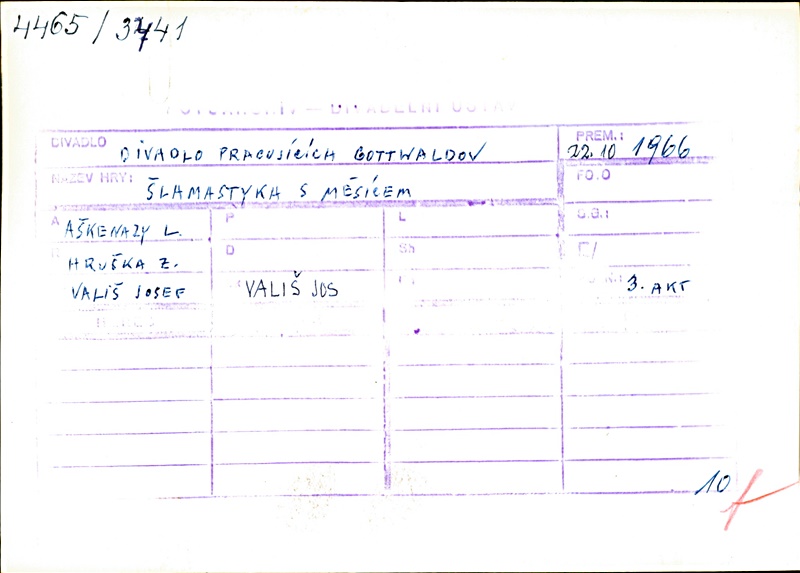 4465/3741
DIVADELNÍ
DIVADLO DIVADLO PRACUJÍCÍCH GOTTWALDOV PREM.: 22.10 1966
NÁZEV HRY: ŠLAMASTYKA S MĚSÍCEM FO.O
A AŠKENAZY L. P L O.B.:
HRUŠKA Z. D SS
VALIŠ JOSEF VALIŠ JOS 3. AKT
10